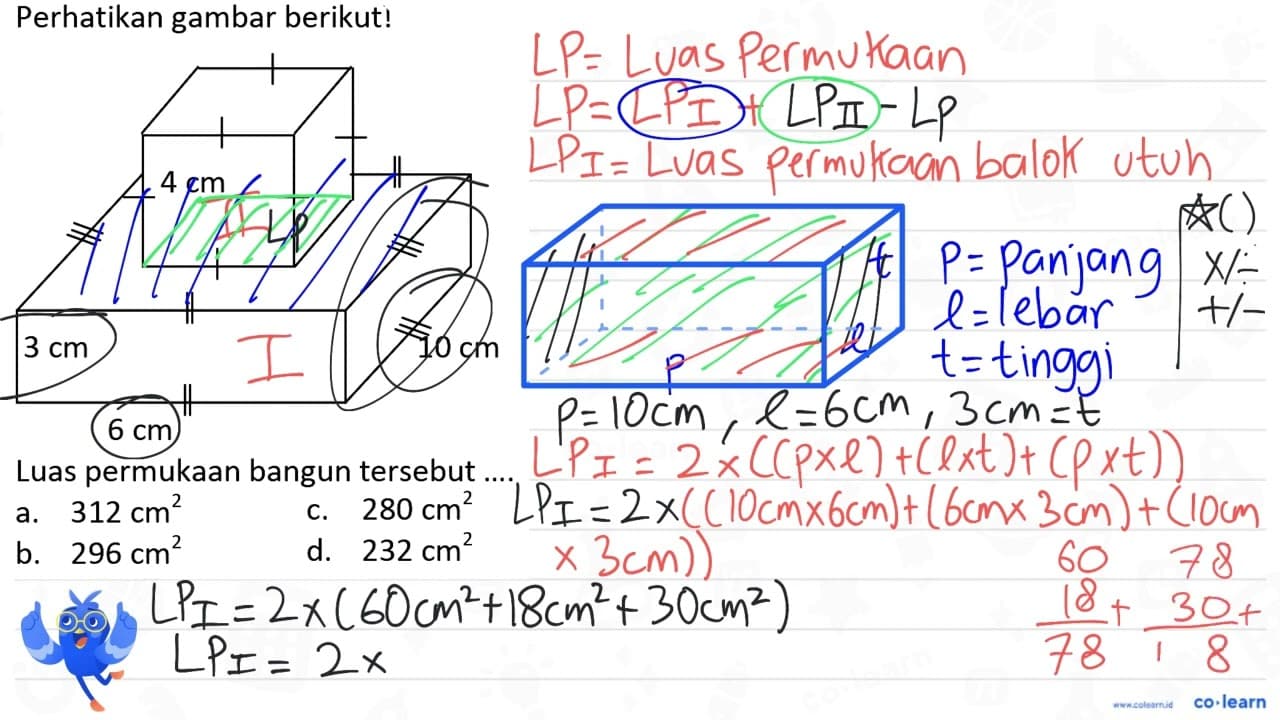 Perhatikan gambar berikut!
4 cm
II
LP
3 cm
I
10 cm
6 cm
Luas permukaan bangun tersebut ....
a. 312 cm²
c. 280 cm²
b. 296 cm²
d. 232 cm²
LP= Luas Permukaan
LP= LPI + LPII - LP
LPI = Luas permukaan balok utuh
t
l
p
P= Panjang
l=lebar
t=tinggi
☆()
X/÷
+/-
p=10cm, l=6cm, 3cm=t
LPI = 2×((p×l)+(l×t)+(p×t))
LPI=2×((10cm×6cm)+(6cm×3cm)+(10cm
× 3cm))
LPI=2×(60cm²+18cm²+30cm²)
LPI= 2×
60
18 +
78
78
30 +
1 8
co·learn
www.colearn.id
co·learn